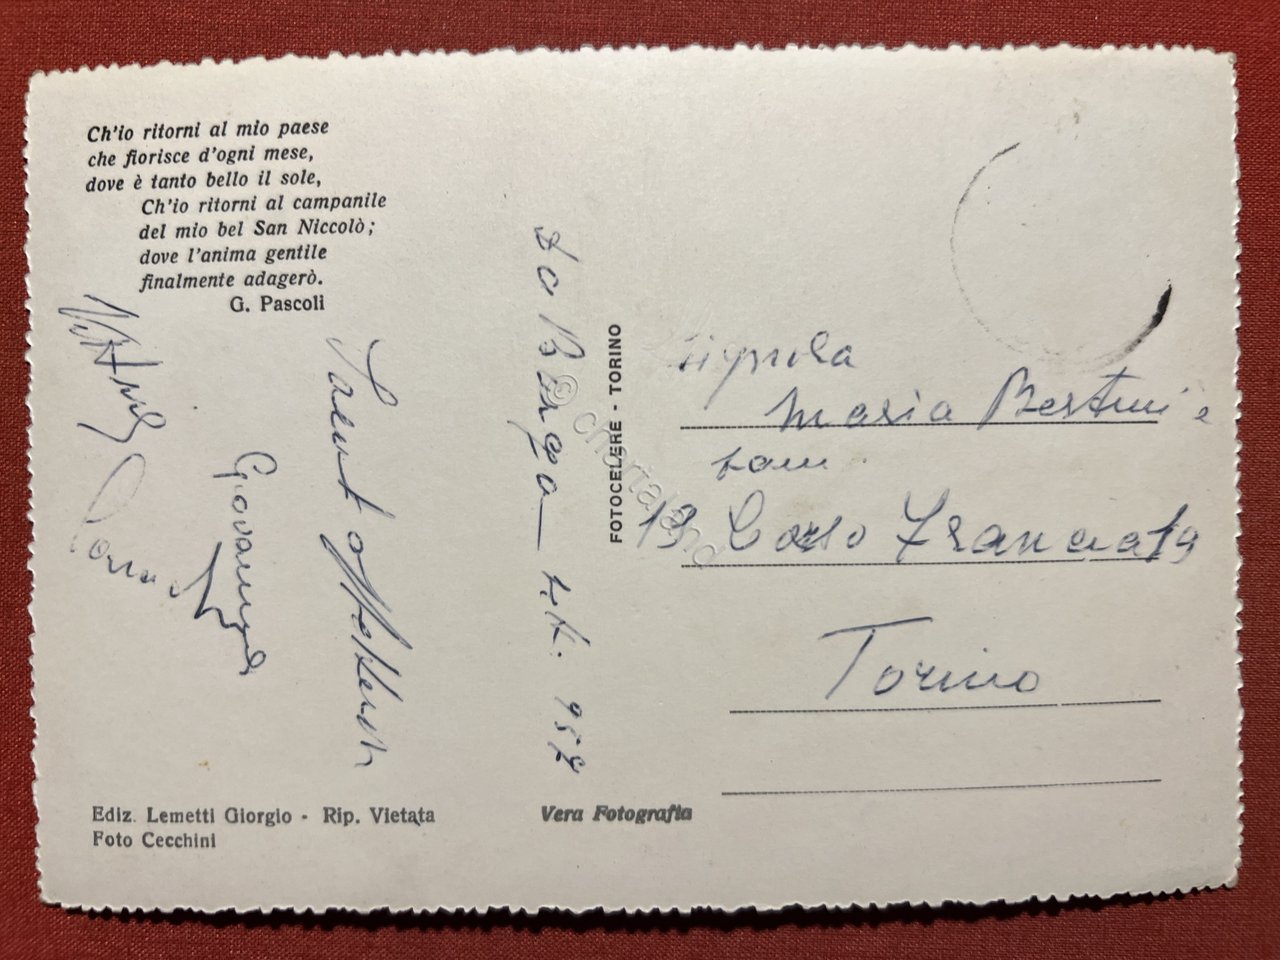 Ch'io ritorni al mio paese
che fiorisce d'ogni mese,
dove è tanto bello il sole,
Ch'io ritorni al campanile
del mio bel San Niccolò;
dove l'anima gentile
finalmente adagerò.
G. Pascoli
Giovanni
Da Barga
957
FOTOCELERE - TORINO
© cartaland
Maria
e
fam
Corso Francia
Torino
Ediz. Lemetti Giorgio - Rip. Vietata
Foto Cecchini
Vera Fotografia